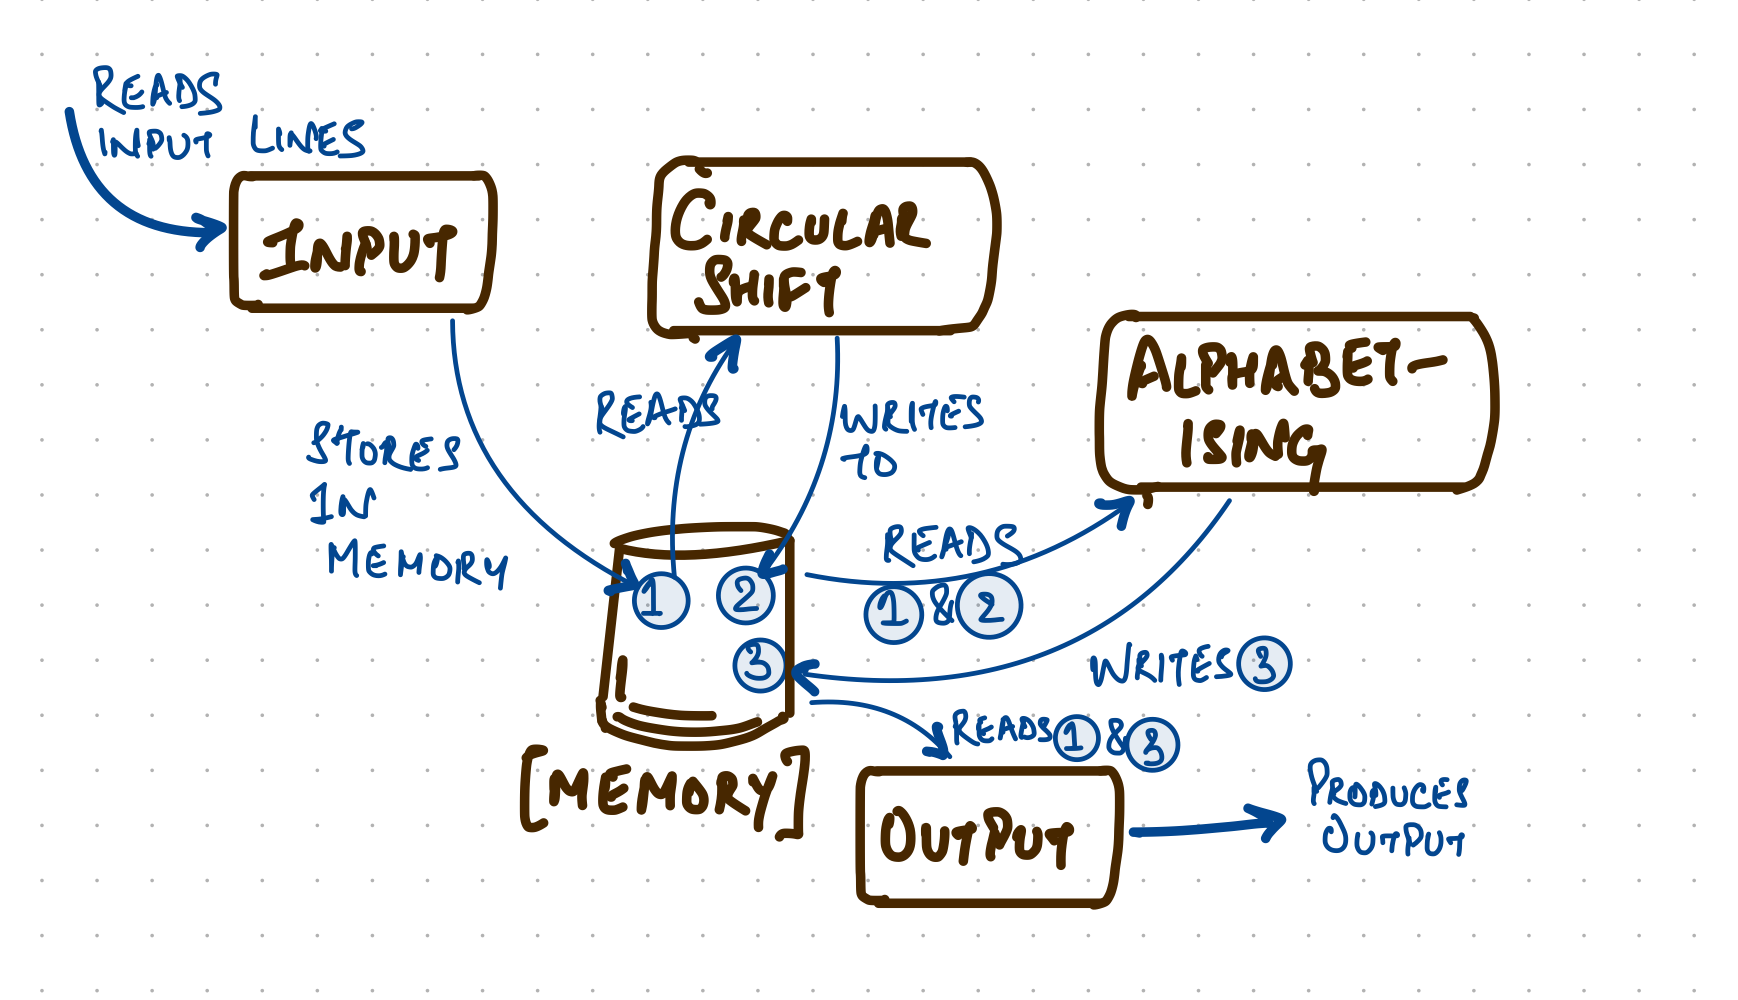 READS
INPUT LINES
INPUT
CIRCULAR
SHIFT
ALPHABET-
ISING
STORES
IN
MEMORY
READS
WRITES
TO
READS
1 & 2
1
2
3
WRITES 3
READS 1 & 3
[MEMORY]
OUTPUT
PRODUCES
OUTPUT